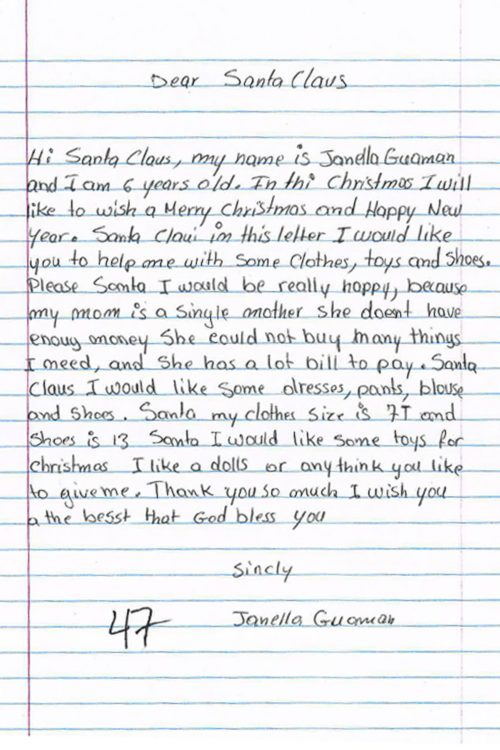 Dear Santa Claus
Hi Santa Claus, my name is Janella Guaman
and I am 6 years old. In thi Christmas I will
like to wish a Merry Christmas and Happy New
Year. Santa Claui im this letter I would like
you to help me with some clothes, toys and shoes.
Please Santa I would be really happy, because
my mom is a single mother she doent have
enouy money She could not buy many things
I need, and she has a lot bill to pay. Santa
Claus I would like some dresses, pants, blouse
and shoes. Santa my clothes size is 7T and
shoes is 13 Santa I would like some toys for
christmas I like a dolls or any think you like
to give me. Thank you so much I wish you
a the besst that God bless you
Sincly
47 Janella Guaman